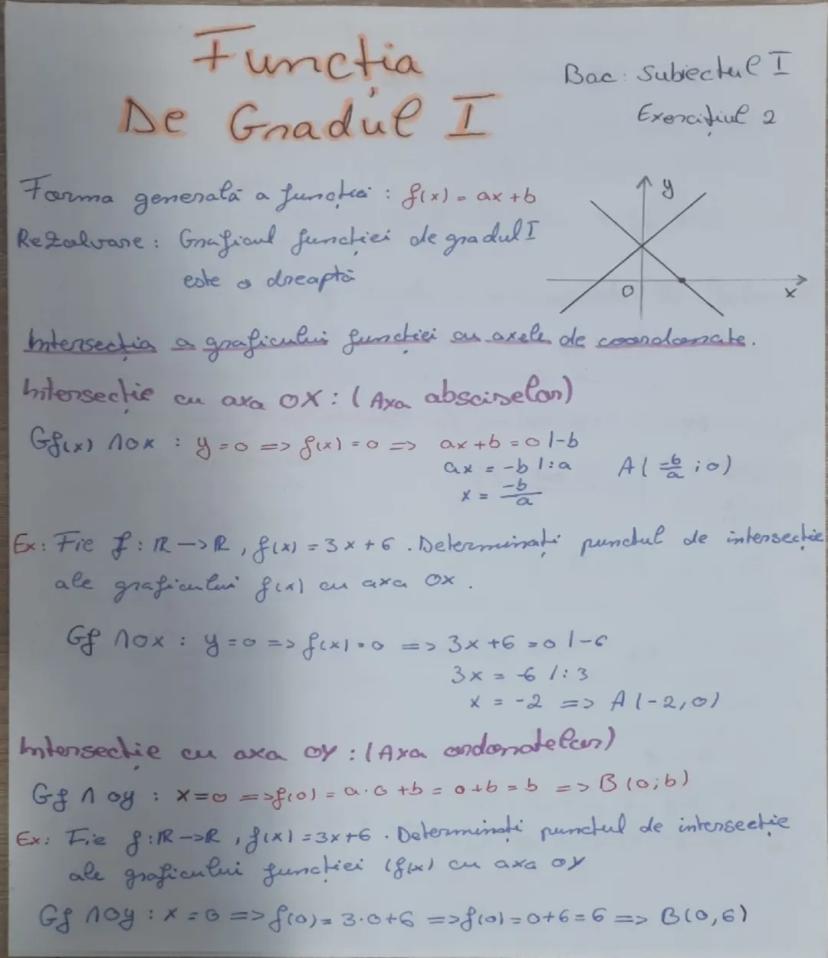 Funcția
De Gradul I
Bac: Subiectul I
Exercițiul 2
Forma generală a funcției : f(x) = ax+b
Rezolvare : Graficul funcției de gradul I
este o dreaptă
y
O
x
Intersecția a graficului funcției cu axele de coordonate.
Intersecție cu axa OX : (Axa absciselor)
Gf(x) ∩ OX : y=0 => f(x)=0 => ax+b=0 |-b
ax = -b |:a
A(-b/a ; 0)
x = -b/a
Ex: Fie f: R->R, f(x)=3x+6. Determinați punctul de intersecție
ale graficului f(x) cu axa OX.
Gf ∩ OX : y=0 => f(x)=0 => 3x+6=0 |-6
3x = -6 |:3
x = -2 => A(-2,0)
Intersecție cu axa OY : (Axa ordonatelor)
Gf ∩ OY : x=0 => f(0) = a·0+b = 0+b = b => B(0;b)
Ex: Fie f: R->R, f(x)=3x+6. Determinați punctul de intersecție
ale graficului funcției (f(x) cu axa OY
Gf ∩ OY : x=0 => f(0)=3·0+6 => f(0)=0+6=6 => B(0,6)